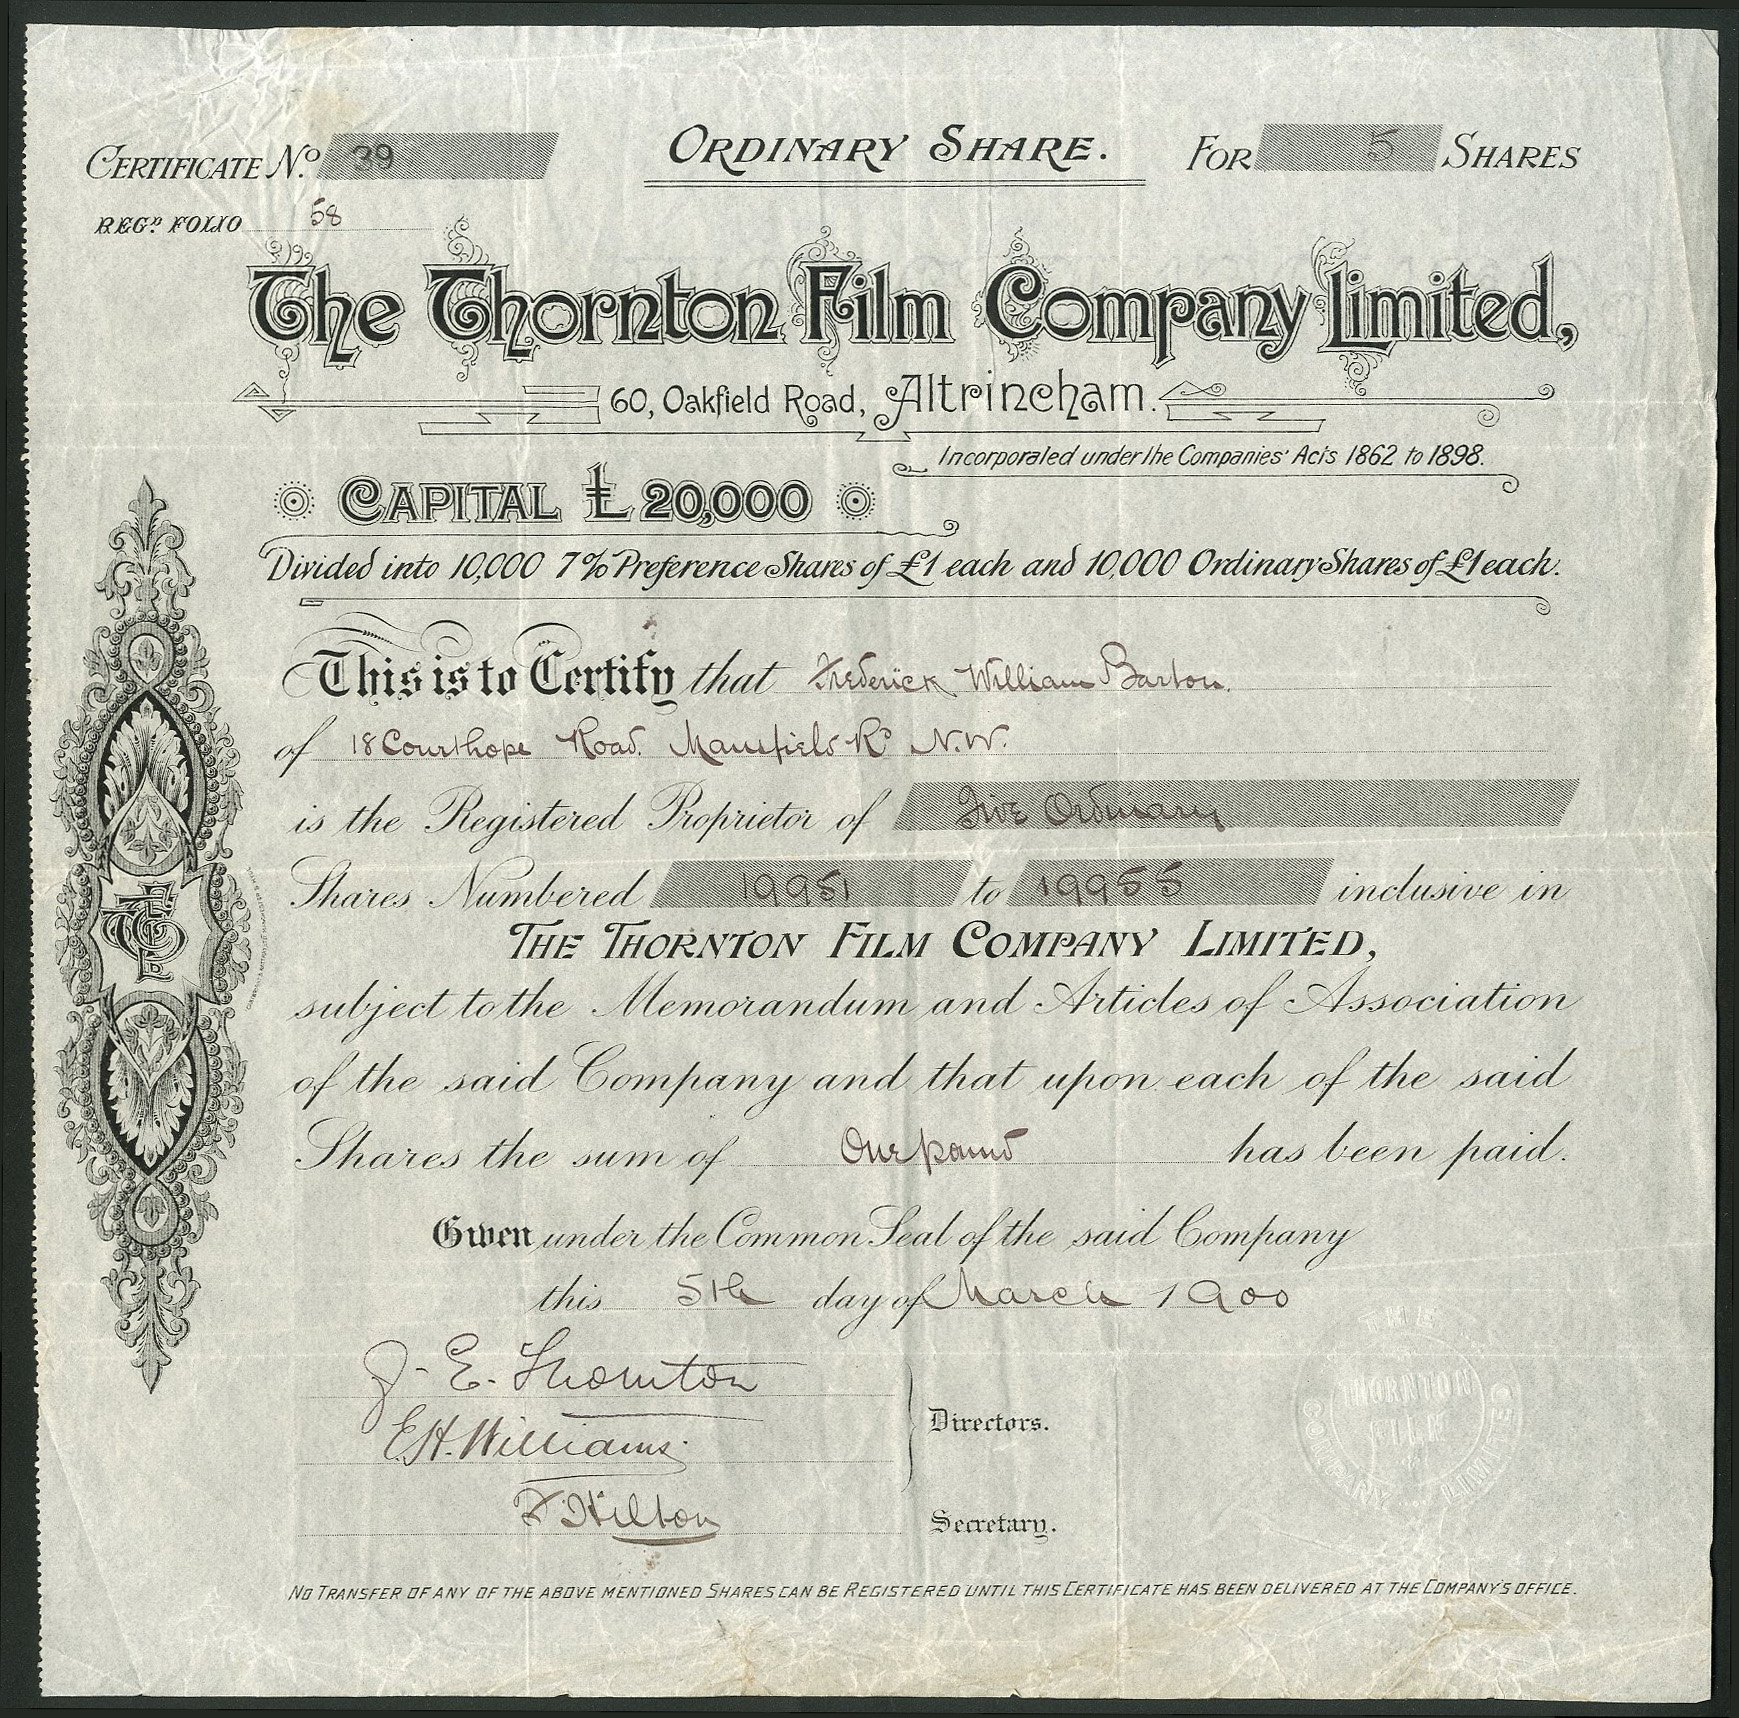 CERTIFICATE No. 39
ORDINARY SHARE.
FOR 5 SHARES
REGD. FOLIO 58
The Thornton Film Company Limited,
60, Oakfield Road, Altrincham.
Incorporated under the Companies' Acts 1862 to 1898.
CAPITAL £20,000
Divided into 10,000 7% Preference Shares of £1 each and 10,000 Ordinary Shares of £1 each.
This is to Certify that Frederick William Barton.
of 18 Courthope Road. Mansfield Rd N.W.
is the Registered Proprietor of Five Ordinary
Shares Numbered 19951 to 19955 inclusive in
THE THORNTON FILM COMPANY LIMITED,
subject to the Memorandum and Articles of Association
of the said Company and that upon each of the said
Shares the sum of One pound has been paid.
Given under the Common Seal of the said Company
this 5th day of March 1900
J. E. Thornton
E.H. Williams.
Directors.
Hilton
Secretary.
THE THORNTON FILM COMPANY LIMITED
NO TRANSFER OF ANY OF THE ABOVE MENTIONED SHARES CAN BE REGISTERED UNTIL THIS CERTIFICATE HAS BEEN DELIVERED AT THE COMPANY'S OFFICE.